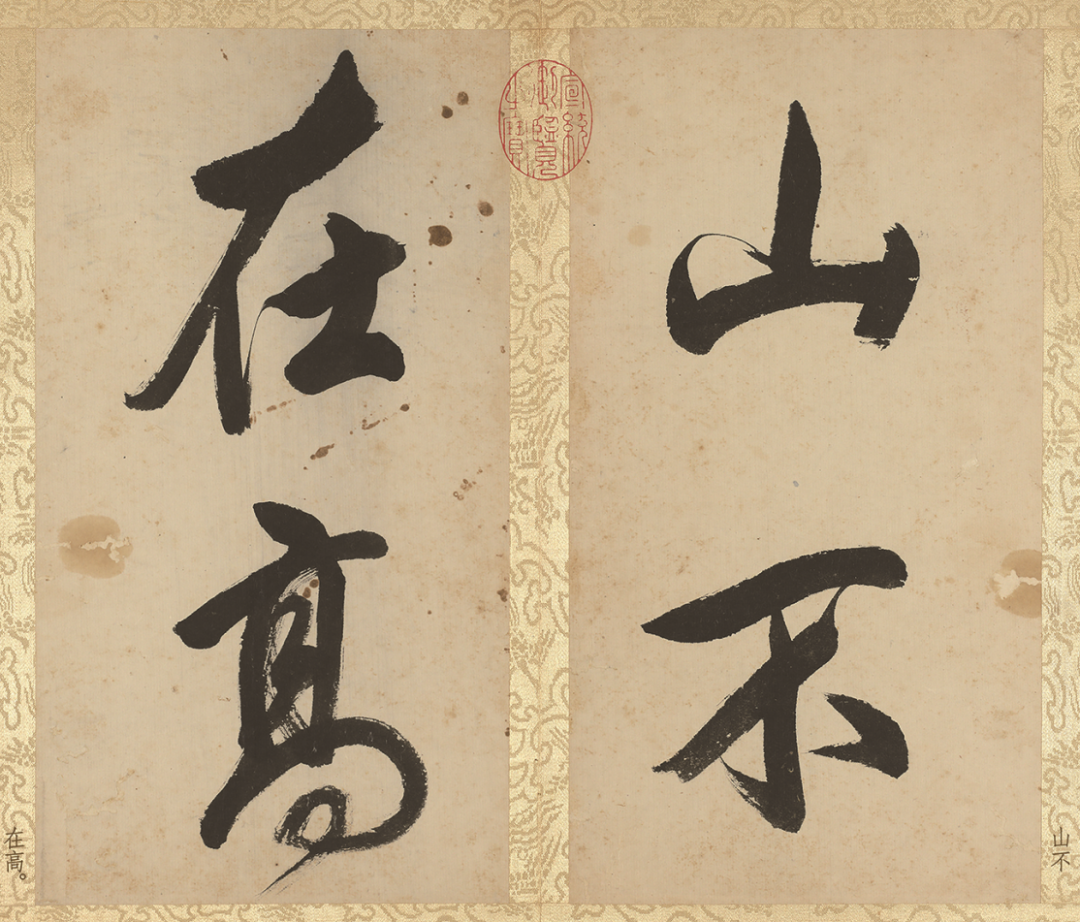 山不
在高
宣統御覽之寶
山不
在高。